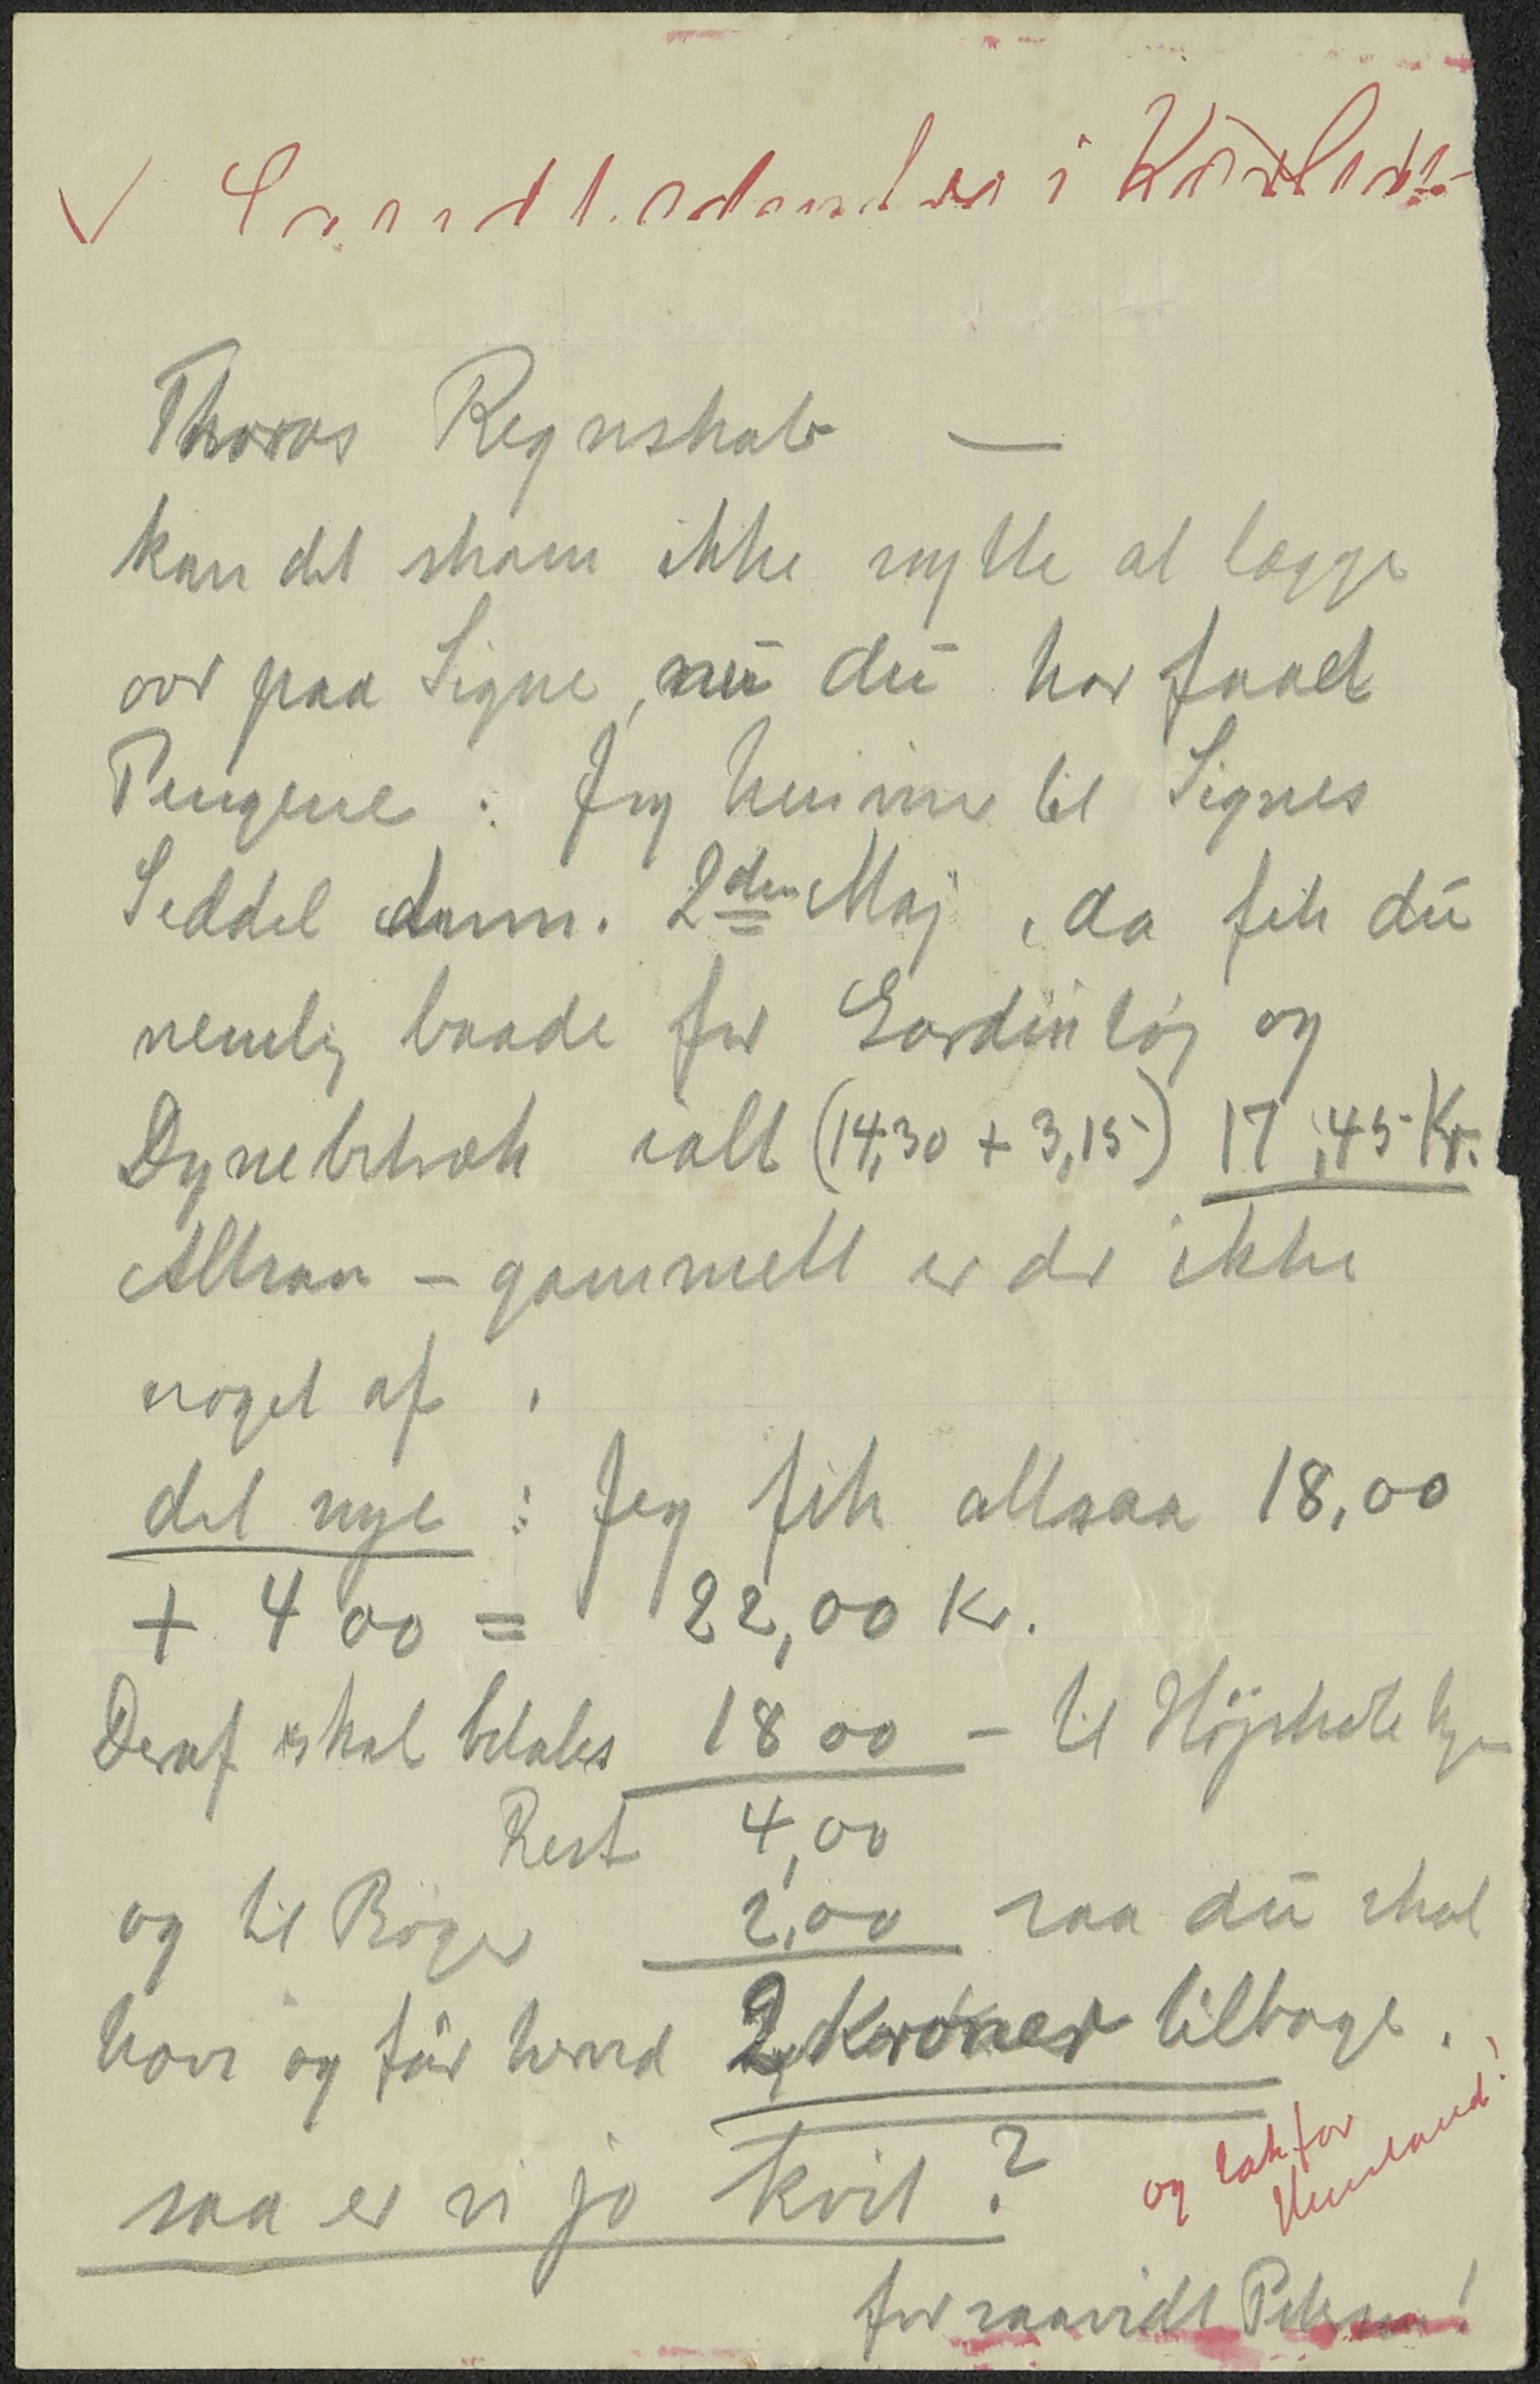 Thoras Regnskab —
kan det skam ikke nytte at lægge
over paa Signe, nu du har faaet
Pengene : Jeg henviser til Signes
Seddel 2den Maj, da fik du
nemlig baade for Gardintøj og
Dynebetræk ialt (14,30 + 3,15) 17,45 Kr.
Altsaa – gammelt er der ikke
noget af.
det nye : Jeg fik altsaa 18,00
+ 4 00 = 22,00 Kr.
Deraf skal betales 18 00 – til
Rest 4,00
og til Bøger 2,00 saa du skal
have og får herved 2 Kroner tilbage.
og tak for
saa er vi jo kvit ?
for saavidt Petersen!